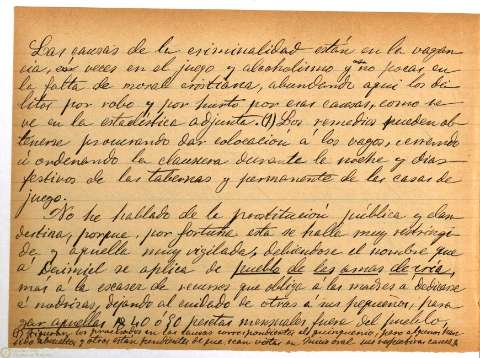 Las causas de la criminalidad están en la vagan
cia, en veces en el juego y alcoholismo y no pocas en
la falta de moral cristiana, abundando aquí los de
litos por robo y por hurto por esas causas, como se
ve en la estadística adjunta. (1) Los remedios pueden ob
tenerse procurando dar colocación á los vagos, cerrando
ú ordenando la clausura durante la noche y dias
festivos de las tabernas y permanente de las casas de
juego.
No he hablado de la prostitución pública y clan
destina, porque, por fortuna esta se halla muy restringi
da y aquella muy vigilada, debiéndose el nombre que
a se aplica de pueblo de las amas de cria,
mas á la escasez de recursos que obliga a las madres a dedicarse
á nodrizas, dejando al cuidado de otras á sus pequeños, para
ganar aquellas 40 ó 50 pesetas mensuales fuera del pueblo.
(1) Figuran los procesados en las causas correspondientes al quinquenio, pero algunos han
sido absueltos y otros están pendientes de que sean vistas en Juicio oral sus respectivas causas.